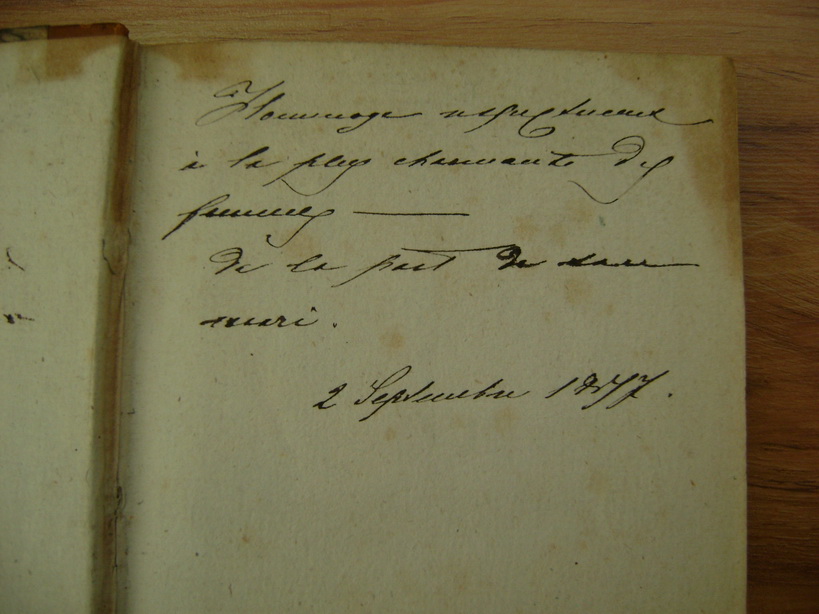 Hommage respectueux
à la plus charmante des
femmes —
de la part de son
mari.
2 Septembre 1857.